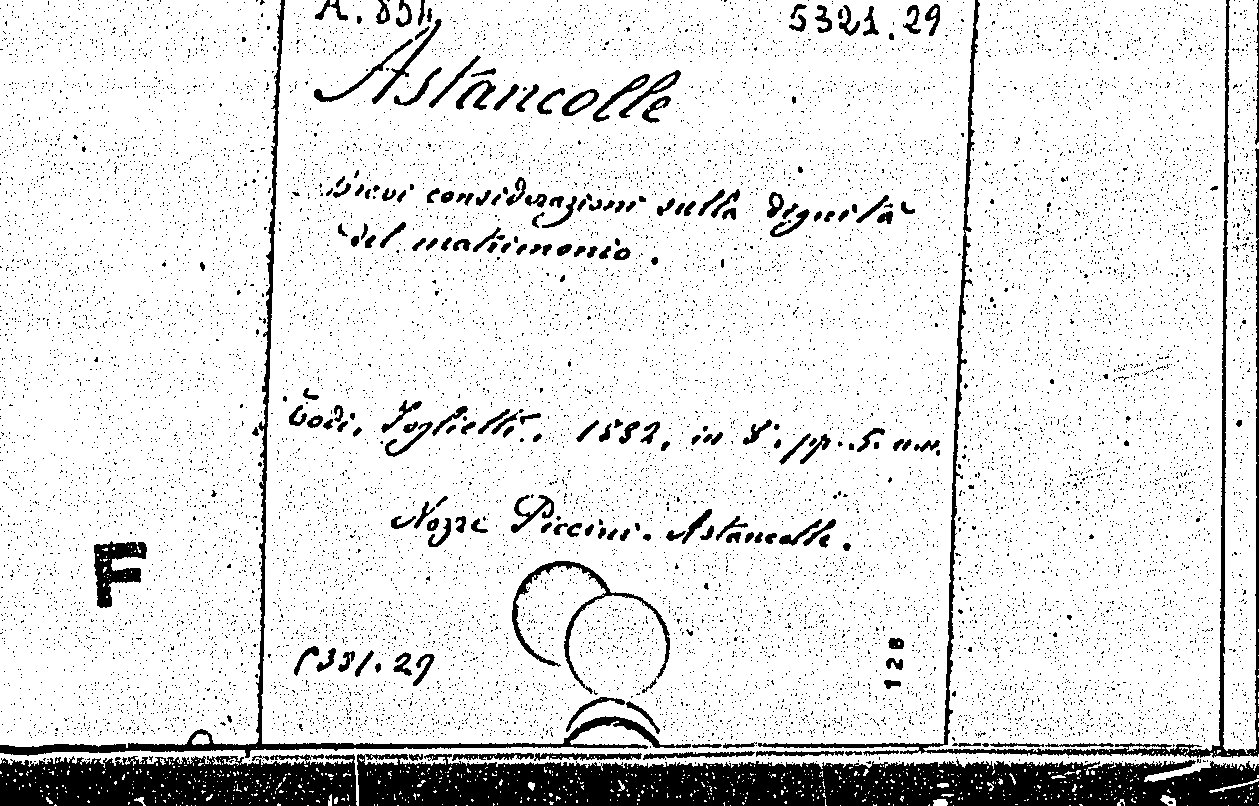 A. 854
5321.29
Astancolle
Brevi considerazioni sulla dignità
del matrimonio.
Todi, Foglietti, 1882, in 8°, pp. 5. n.n.
Nozze Piccini-Astancolle.
5381.29
128
F